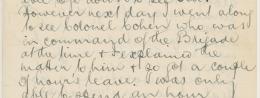 However next day I went along
to see Colonel Cohen who was
in command of the Brigade
at the time & explained the
matter to him & so got a couple
of hours leave. I was only
able to spend an hour